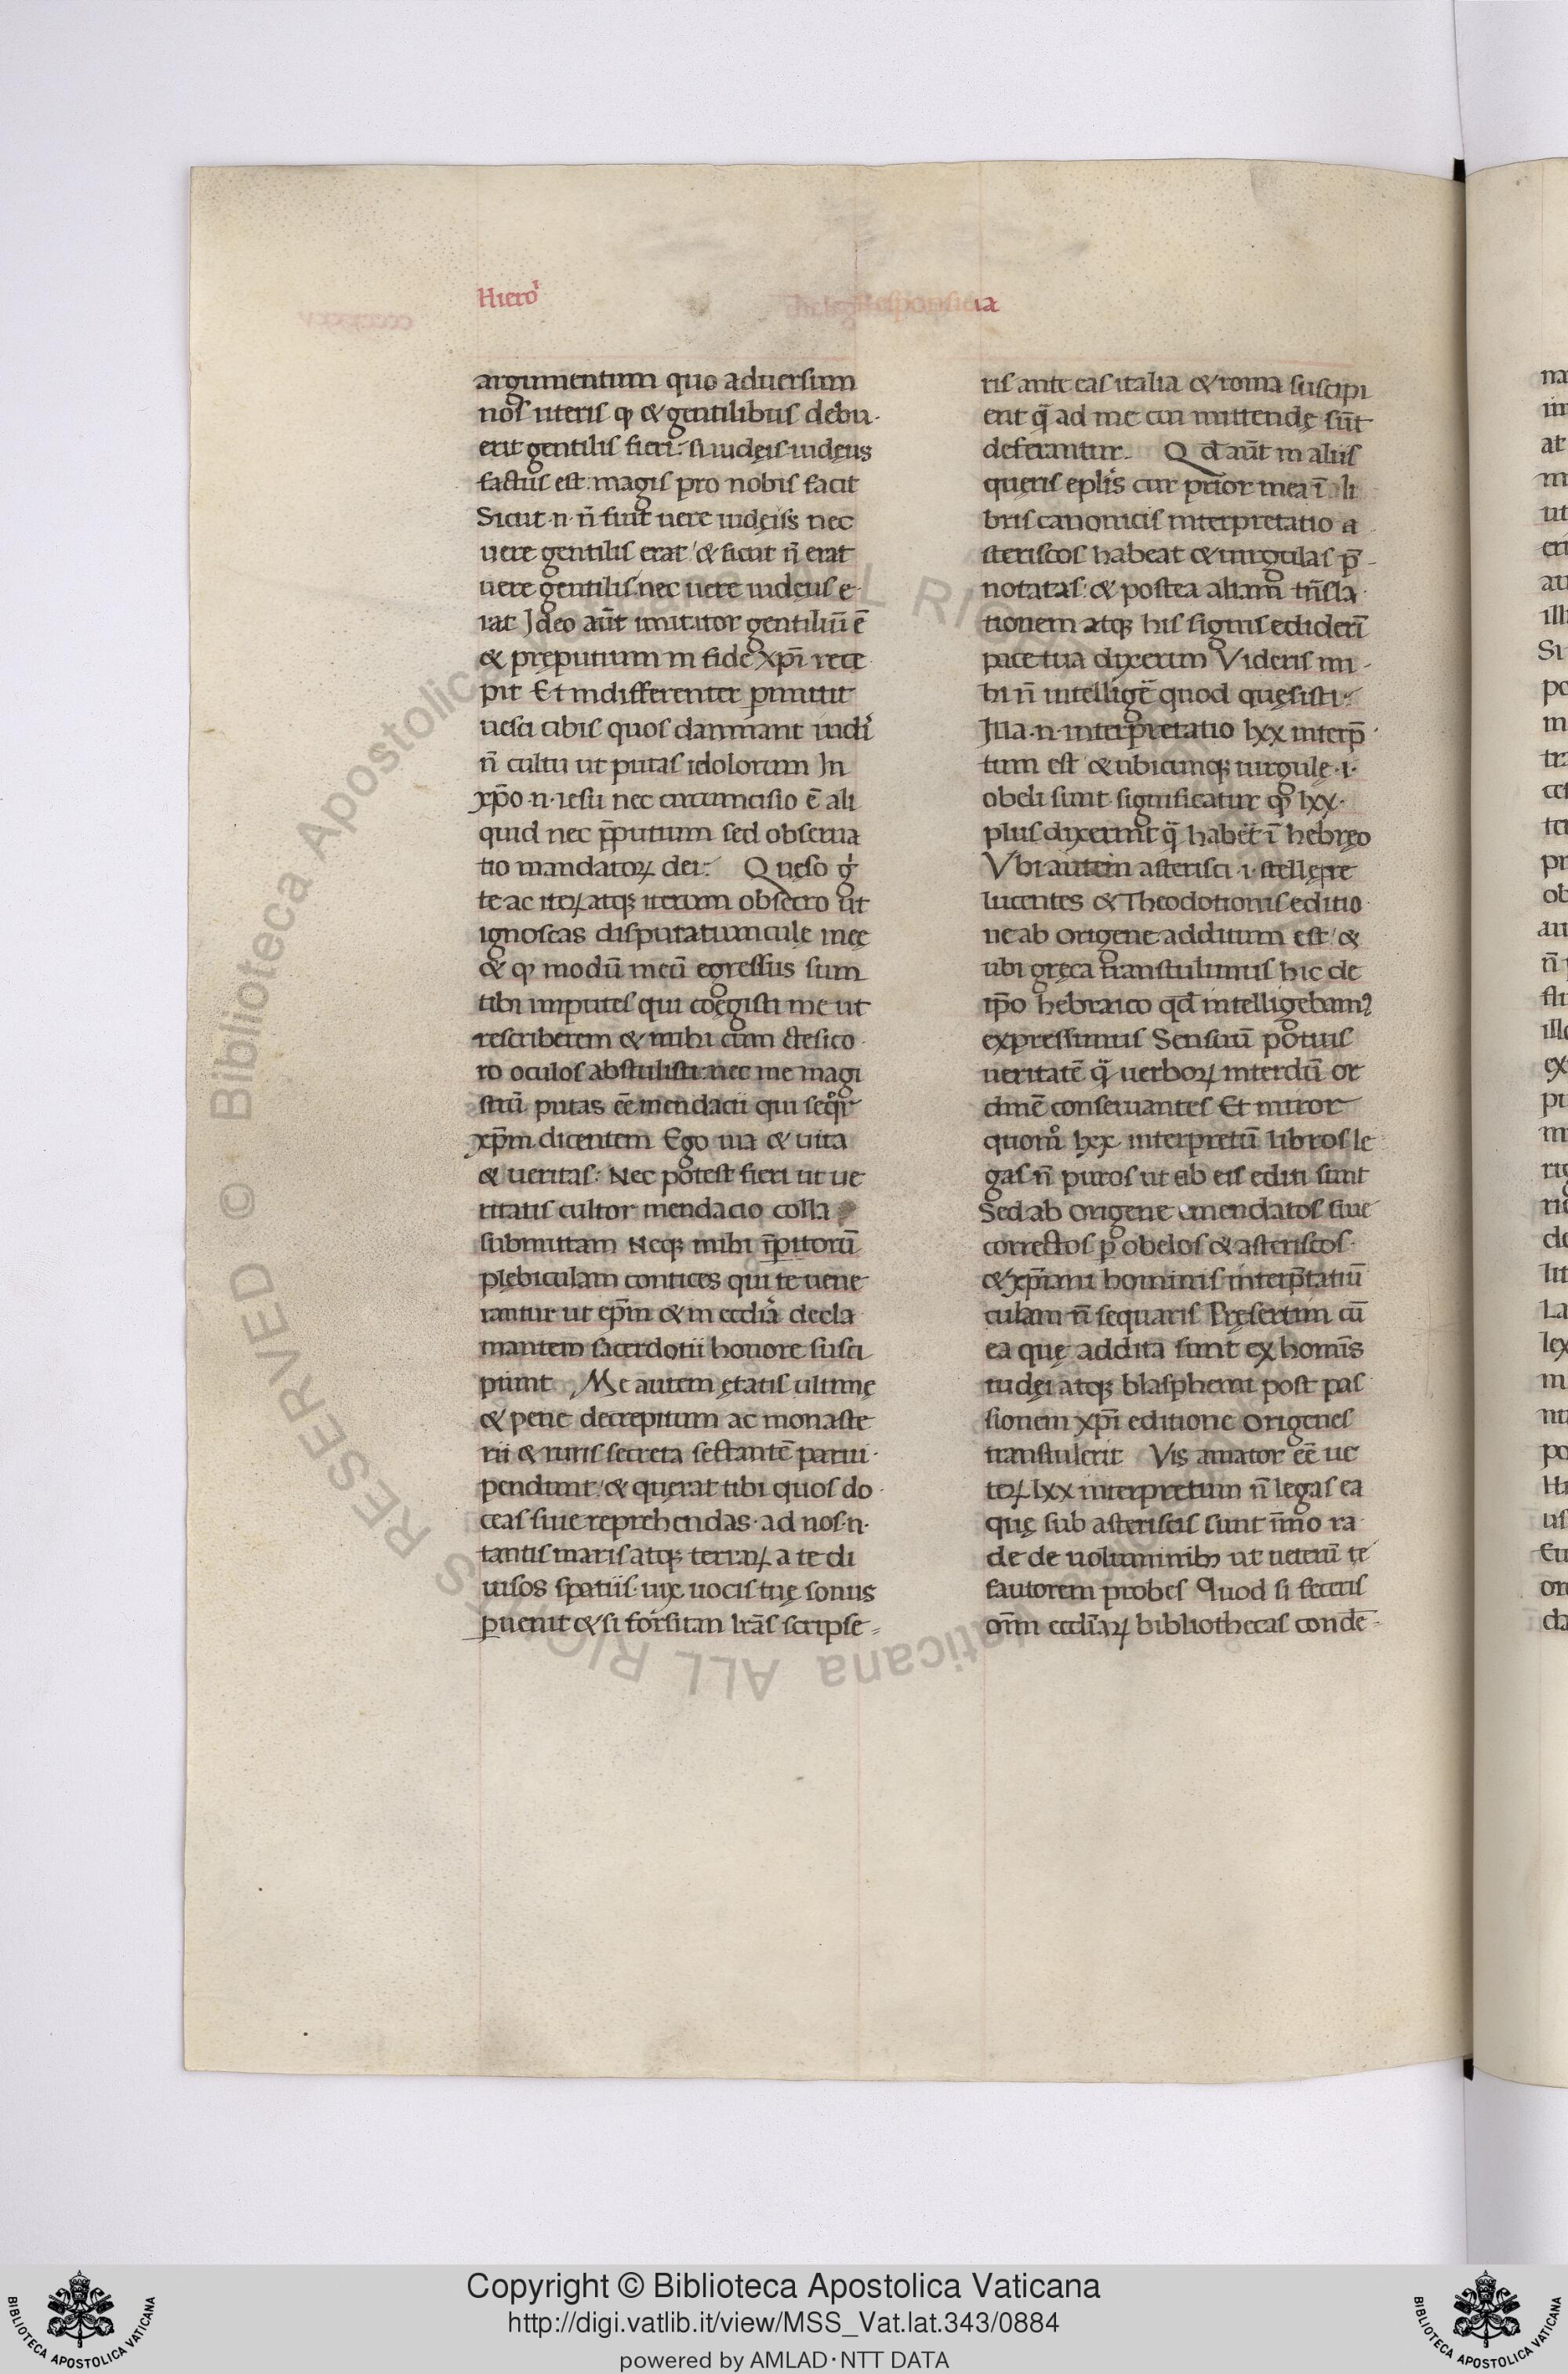 Hieroͥ
argumentum quo aduersum
nos uteris ꝙ & gentilibus debu-
erit gentilis fieri: si iudęis iudęus
factus est: magis pro nobis facit
Sicut ·n· ñ fuit uere iudęiss nec
uere gentilis erat & sicut ñ erat
uere gentilis nec uere iudęus e-
rat Ideo aūt imitator gentiliū ē
& pręputium in fide xp̄i rece
pit Et indifferenter ꝑmittit
uesci cibis quos damnant iudi
ñ cultu ut putas idolorum In
xp̄o ·n· iesu nec circumcisio ē ali
quid nec p̄putium sed obserua
tio mandatoꝝ dei: Quęso gͥ
te ac iteꝝ atqꝫ iterum obsecro ut
ignoscas disputatiuncule meę
& ꝙ modū meū egressus sum
tibi imputes qui coegisti me ut
rescriberem & mihi cum stesico
ro oculos abstulisti: nec me magi
strū putas eē mendacii qui seqͦr
xp̄m dicentem Ego uia & uita
& ueritas: Nec potest fieri ut ue
ritatis cultor mendacio colla
submittam Neqꝫ mihi īꝑitorū
plębiculam concites qui te uene
rantur ut ep̄m & in ecclīa decla
mantem sacerdotii honore susci
piunt Me autem ętatis ultimę
& pene decrepitum ac monaste
rii & ruris secreta sectantē parui-
pendunt: & quęrat tibi quos do-
ceas siue reprehendas· ad nos ·n·
tantis maris atqꝫ terraꝝ a te di
uisos spatiis uix uocis tuę sonus
ꝑuenit & si forsitan lrās scripse-
ris ante eas italia & roma suscipi
ent q̄ ad me cui mittendę sūt
deferantur. Qd̄ aūt in aliis
queris epl̄is cur prior mea ī li
bris canonicis interpretatio a
steriscos habeat & uirgulas p̄-
notatas: & postea aliam trn̄sla
tionem atqꝫ his signis ediderī
pace tua dixerim Videris mi-
hi ñ intelligē quod quęsisti:
Illa ·n· interpretatio lxx interp̄
tum est & ubicumqꝫ uirgule ·i·
obeli sunt significatur ꝙ lxx
plus dixerint q̄ habēt ī hebręo
Vbi autem asterisci ·i· stellę pre
lucentes & Theodotionis editio
ne ab origene additum est & 
ubi gręca transtulimus hic de
ip̄o hebraico qd̄ intelligebamꝰ
expressimus Sensuū potius
ueritatē q̄ uerboꝝ interdū or
dinē conseruantes Et miror
quomͦ lxx interpretū libros le
gas ñ puros ut ab eis editi sunt
Sed ab origene emendatos siue
correctos ꝑ obelos & asteriscos
& xp̄iani hominis interp̄tatiū
culam ñ sequaris Pręsertim cū
ea quę addita sunt ex homīs
iudęi atqꝫ blasphemi post pas
sionem xp̄i editione Origenes
transtulerit Vis amator eē ue
teꝝ lxx interpretum ñ legas ea
quę sub asteriscis sunt īmo ra
de de uoluminibꝫ ut ueterū te
fautorem probes Quod si feceris
om̄m ecclīaꝝ bibliothecas condē-
Biblioteca Apostolica Vaticana ALL RIGHTS RESERVED ©
Copyright © Biblioteca Apostolica Vaticana
http://digi.vatlib.it/view/MSS_Vat.lat.343/0884
powered by AMLAD·NTT DATA
BIBLIOTECA APOSTOLICA VATICANA
BIBLIOTECA APOSTOLICA VATICANA